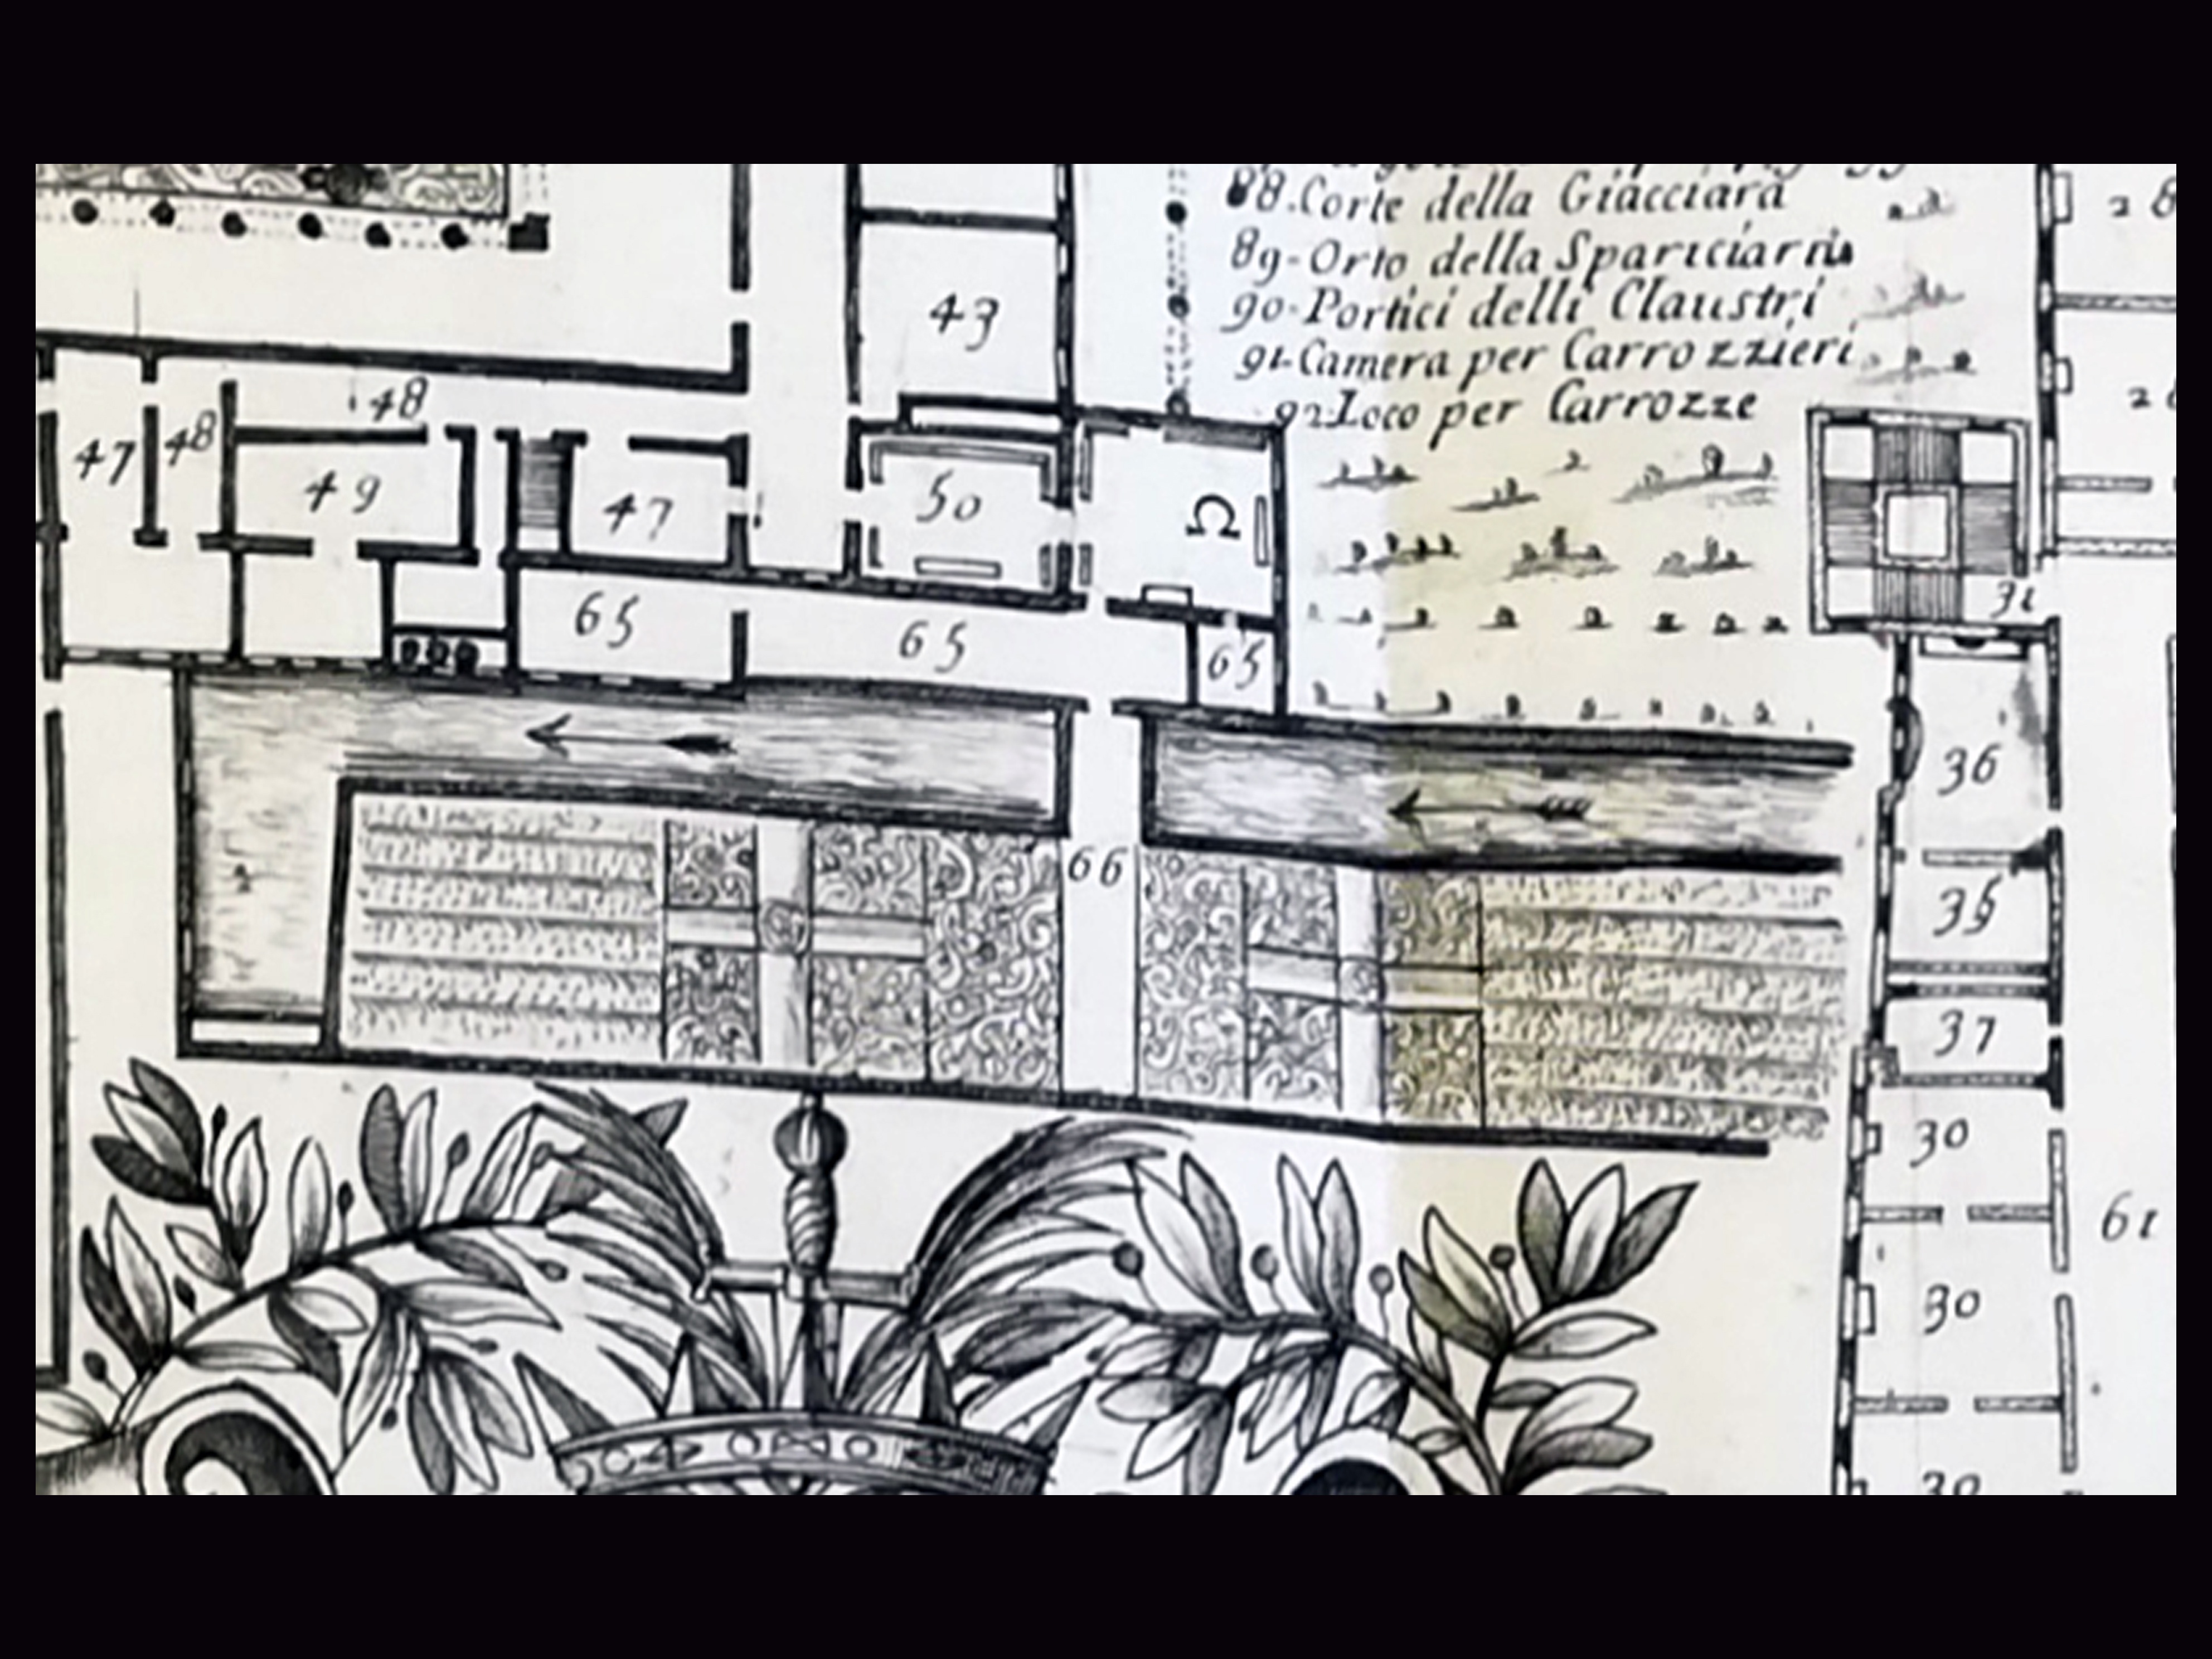 88. Corte della Giacciara
89- Orto della
90- Portici delli Claustri
91- Camera per Carrozzieri
92. Loco per Carrozze
28
43
48
47
48
49
47
50
Ω
31
65
65
65
36
66
35
37
30
61
30
30